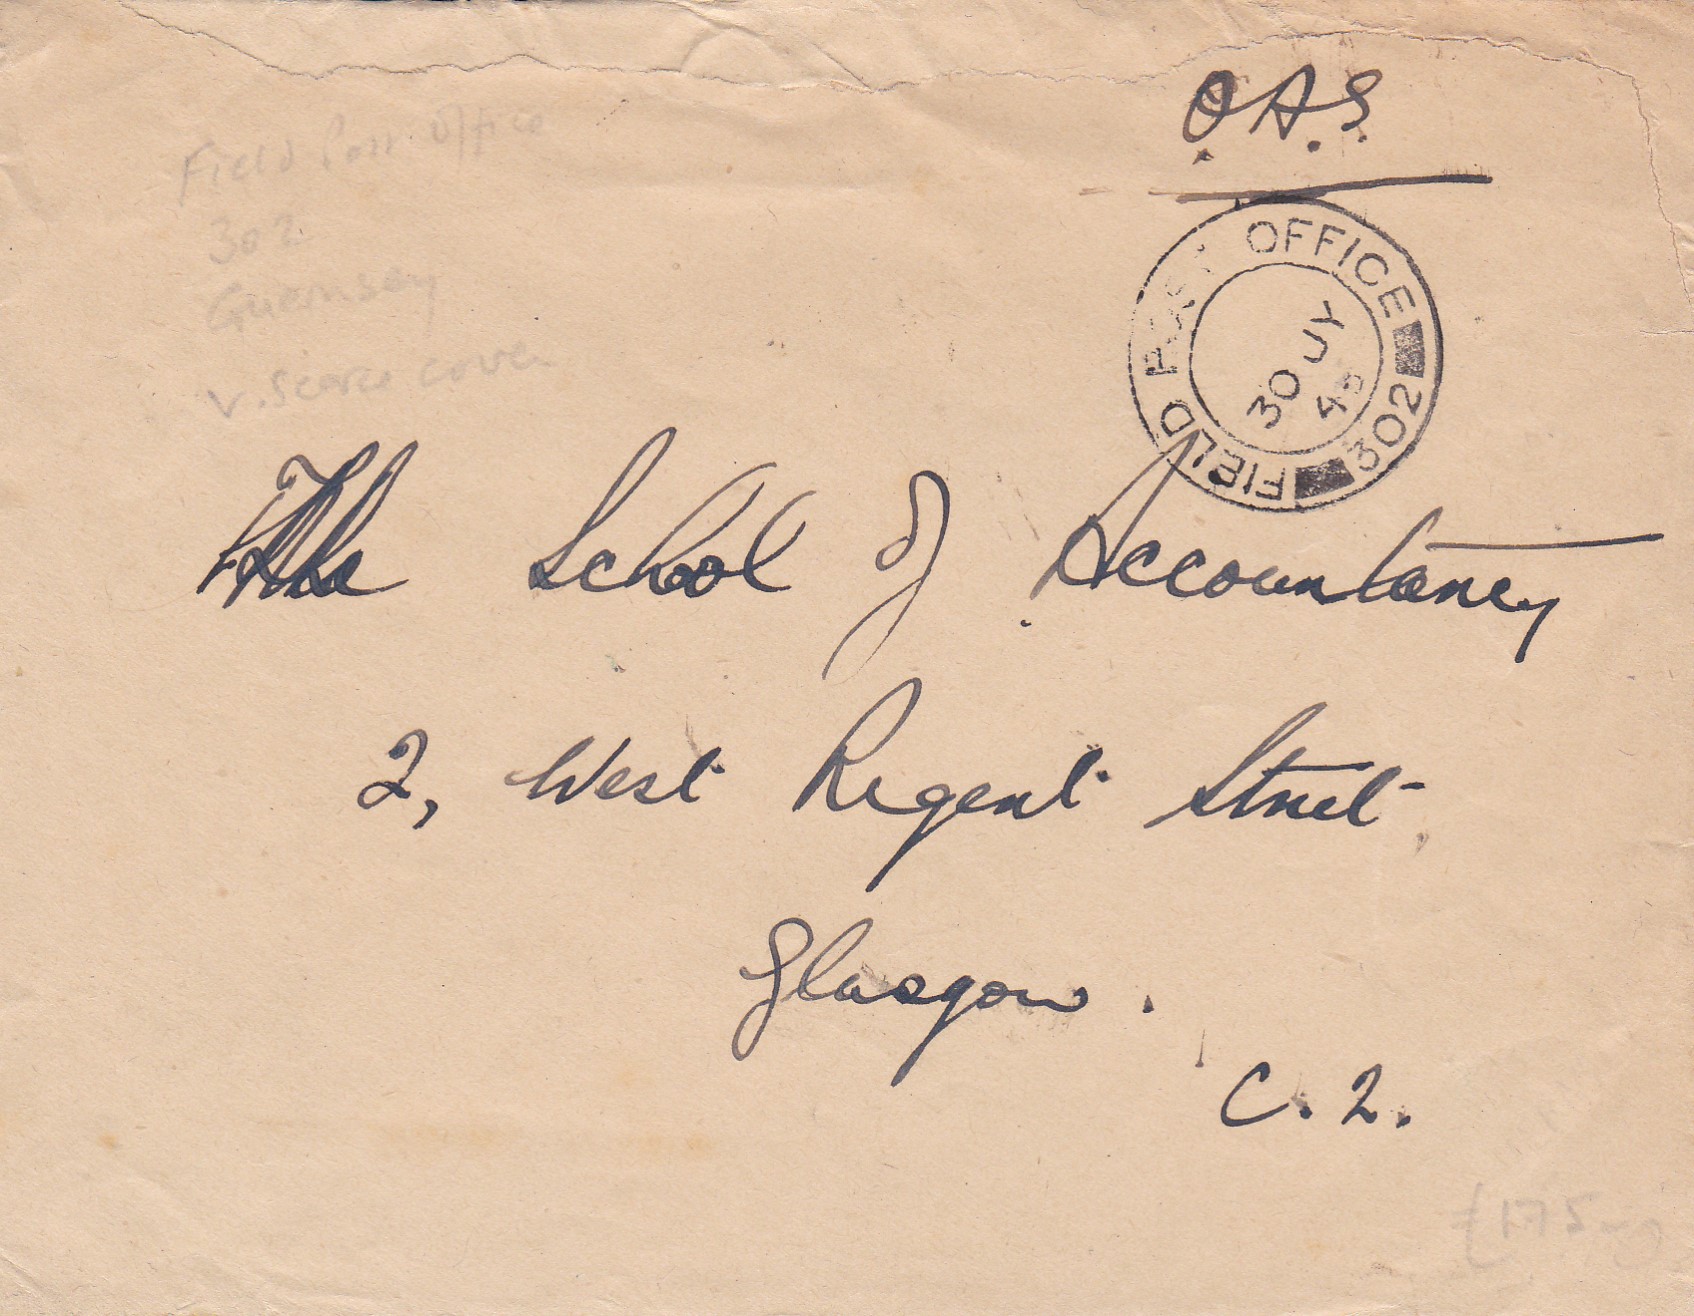 O.A.S.
Field Post Office
302
Guernsey
v. scarce cover
FIELD POST OFFICE
302
30 JY
45
The School of Accountancy
2, West Regent Street
Glasgow.
C. 2.